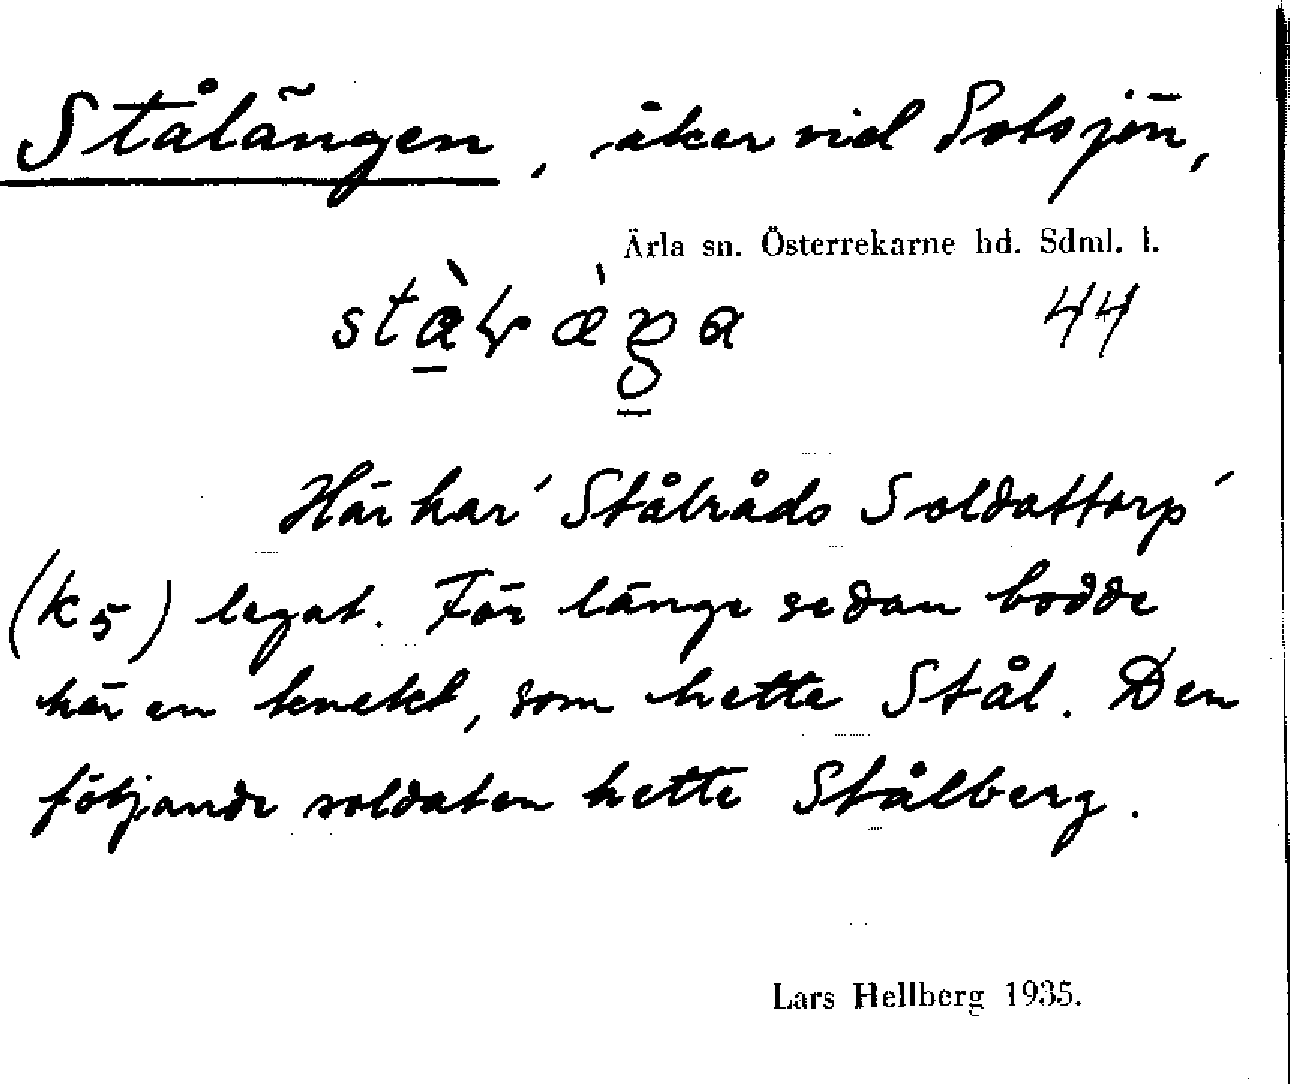 Stålängen, åker vid Sotsjön,
Ärla sn. Österrekarne hd. Sdml. l.
44
Här har 'Stålråds Soldattorp'
(K5) legat. För länge sedan bodde
här en knekt, som hette Stål. Den
följande soldaten hette Stålberg.
Lars Hellberg 1935.